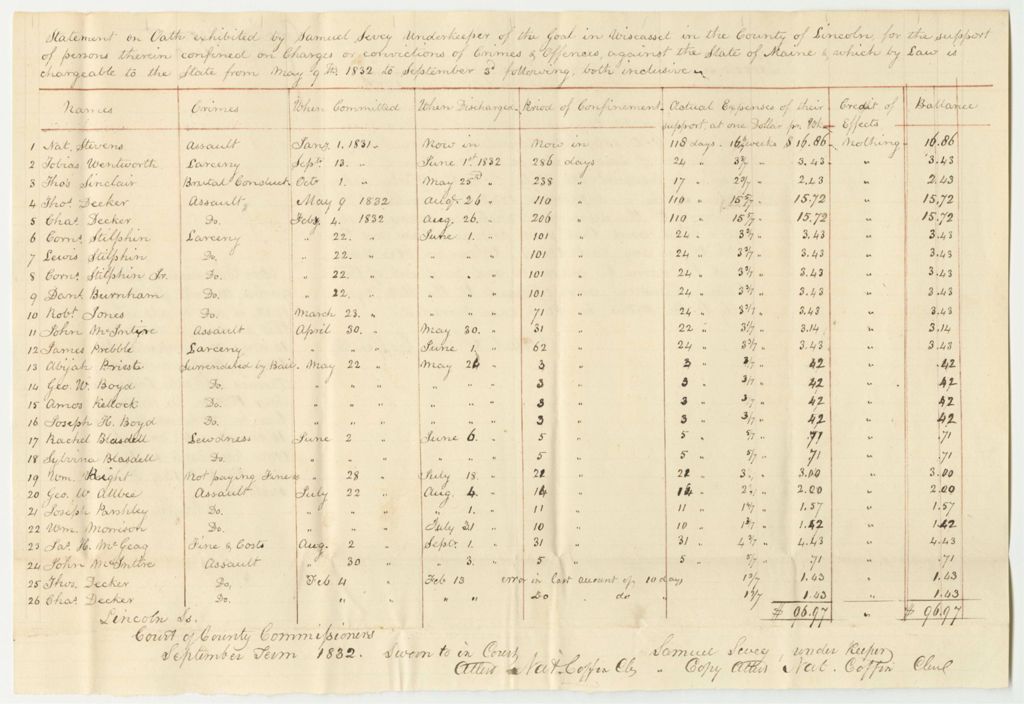 Statement on Oath exhibited by Samuel Sevey Underkeeper of the Goal in Wiscasset in the County of Lincoln, for the support
of persons therein confined on Charges or convictions of Crimes & Offences, against the State of Maine & which by Law is
chargeable to the State from May 9th 1832 to September 3d following, both inclusive
Names Crimes When Committed When Discharged Period of Confinement Actual Expenses of their support, at one Dollar pr. Wk Credit of Effects Ballance
1 Nat. Stevens Assault Jany 1. 1831. Now in Now in 118 days. 16 6/7 weeks $16.86 Nothing 16.86
2 Tobias Wentworth Larceny Sept. 13. " June 1st 1832 286 days 24 " 3 3/7 " 3.43 " 3.43
3 Thos Sinclair Brutal Conduct Octr 1. " May 25th " 238 " 17 " 2 3/7 " 2.43 " 2.43
4 Thos. Decker Assault May 9 1832 Augt 26 " 110 " 110 " 15 5/7 " 15.72 " 15.72
5 Chas. Decker Do. Feby 4. 1832 Aug. 26. " 206 " 110 " 15 5/7 " 15.72 " 15.72
6 Corns. Stilphin Larceny " 22. " June 1. " 101 " 24 " 3 3/7 " 3.43 " 3.43
7 Lewis Stilphin Do. " 22. " " " " 101 " 24 " 3 3/7 " 3.43 " 3.43
8 Corns. Stilphin Jr. Do. " 22. " " " " 101 " 24 " 3 3/7 " 3.43 " 3.43
9 Danl. Burnham Do. " 22. " " " " 101 " 24 " 3 3/7 " 3.43 " 3.43
10 Robt. Jones Do. March 23. " " " " 71 " 24 " 3 3/7 " 3.43 " 3.43
11 John McIntyre Assault April 30. " May 30. " 31 " 22 " 3 1/7 " 3.14 " 3.14
12 James Prebble Larceny " " " June 1. " 62 " 24 " 3 3/7 " 3.43 " 3.43
13 Abijah Brieste Surrendered by Bail. May 22 " May 24 " 3 " 3 " 3/7 " 42 " .42
14 Geo. W. Boyd Do. " " " " " " 3 " 3 " 3/7 " 42 " 42
15 Amos Kellock Do. " " " " " " 3 " 3 " 3/7 " 42 " 42
16 Joseph H. Boyd Do. " " " " " " 3 " 3 " 3/7 " 42 " 42
17 Rachel Blasdell Lewdness June 2 " June 6. " 5 " 5 " 5/7 " .71 " .71
18 Sylvina Blasdell Do. " " " " " " 5 " 5 " 5/7 " 71 " .71
19 Wm. Knight Not paying Fines " 28 " July 18. " 21 " 21 " 3. " 3.00 " 3.00
20 Geo. W Allbee Assault July 22 " Aug. 4. " 14 " 14 " 2. " 2.00 " 2.00
21 Joseph Parshley Do. " " " " 1. " 11 " 11 " 1 4/7 " 1.57 " 1.57
22 Wm. Morrison Do. " " " July 31 " 10 " 10 " 1 3/7 " 1.42 " 1.42
23 Jas. H. McGeag Fine & Costs Aug. 2 " Septr. 1. " 31 " 31 " 4 3/7 " 4.43 " 4.43
24 John McIntire Assault " 30 " " 3. " 5 " 5 " 5/7 " .71 " .71
25 Thos. Decker Do. Feb 4 " Feb 13 error in last account of 10 days 1 3/7 1.43 " 1.43
26 Chas. Decker Do. " " " " " Do " do " 1 3/7 1.43 " 1.43
$ 96.97 " $ 96.97
Lincoln Ss.
Court of County Commissioners
September Term 1832. Sworn to in Court Samuel Sevey, under Keeper
Attest Nat. Coffin Clk " Copy Attest Nat. Coffin Clerk